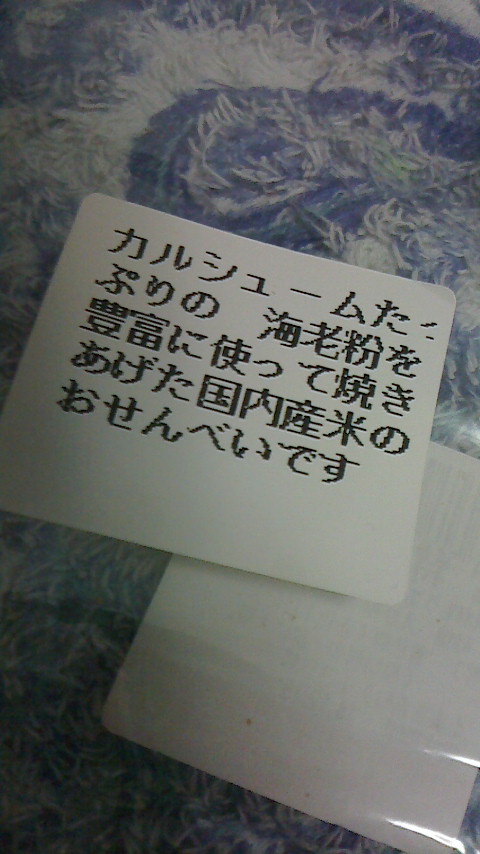 カルシュームたっ
ぷりの　海老粉を
豊富に使って焼き
あげた国内産米の
おせんべいです